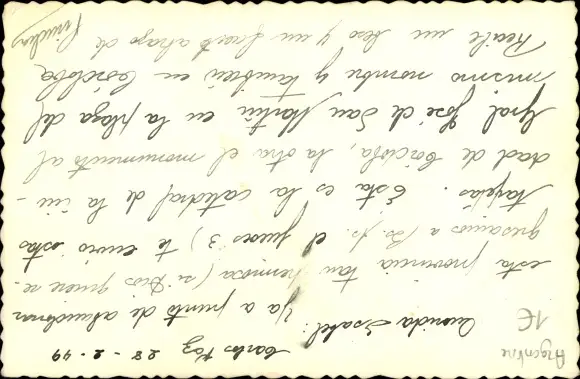 Carlos Paz 28-2-49
Querida Isabel: Ya a punto de abandonar
esta provincia tan hermosa (si Dios quiere re-
gresamos a Bs. As. el jueves 3) te envio estas
tarjetas. Esta es la catedral de la ciu-
dad de Córdoba, la otra el monumento al
Gral. José de San Martín en la plaza del
mismo nombre y también en Córdoba.
Recibe un beso y un fuerte abrazo de
Argentine
1€